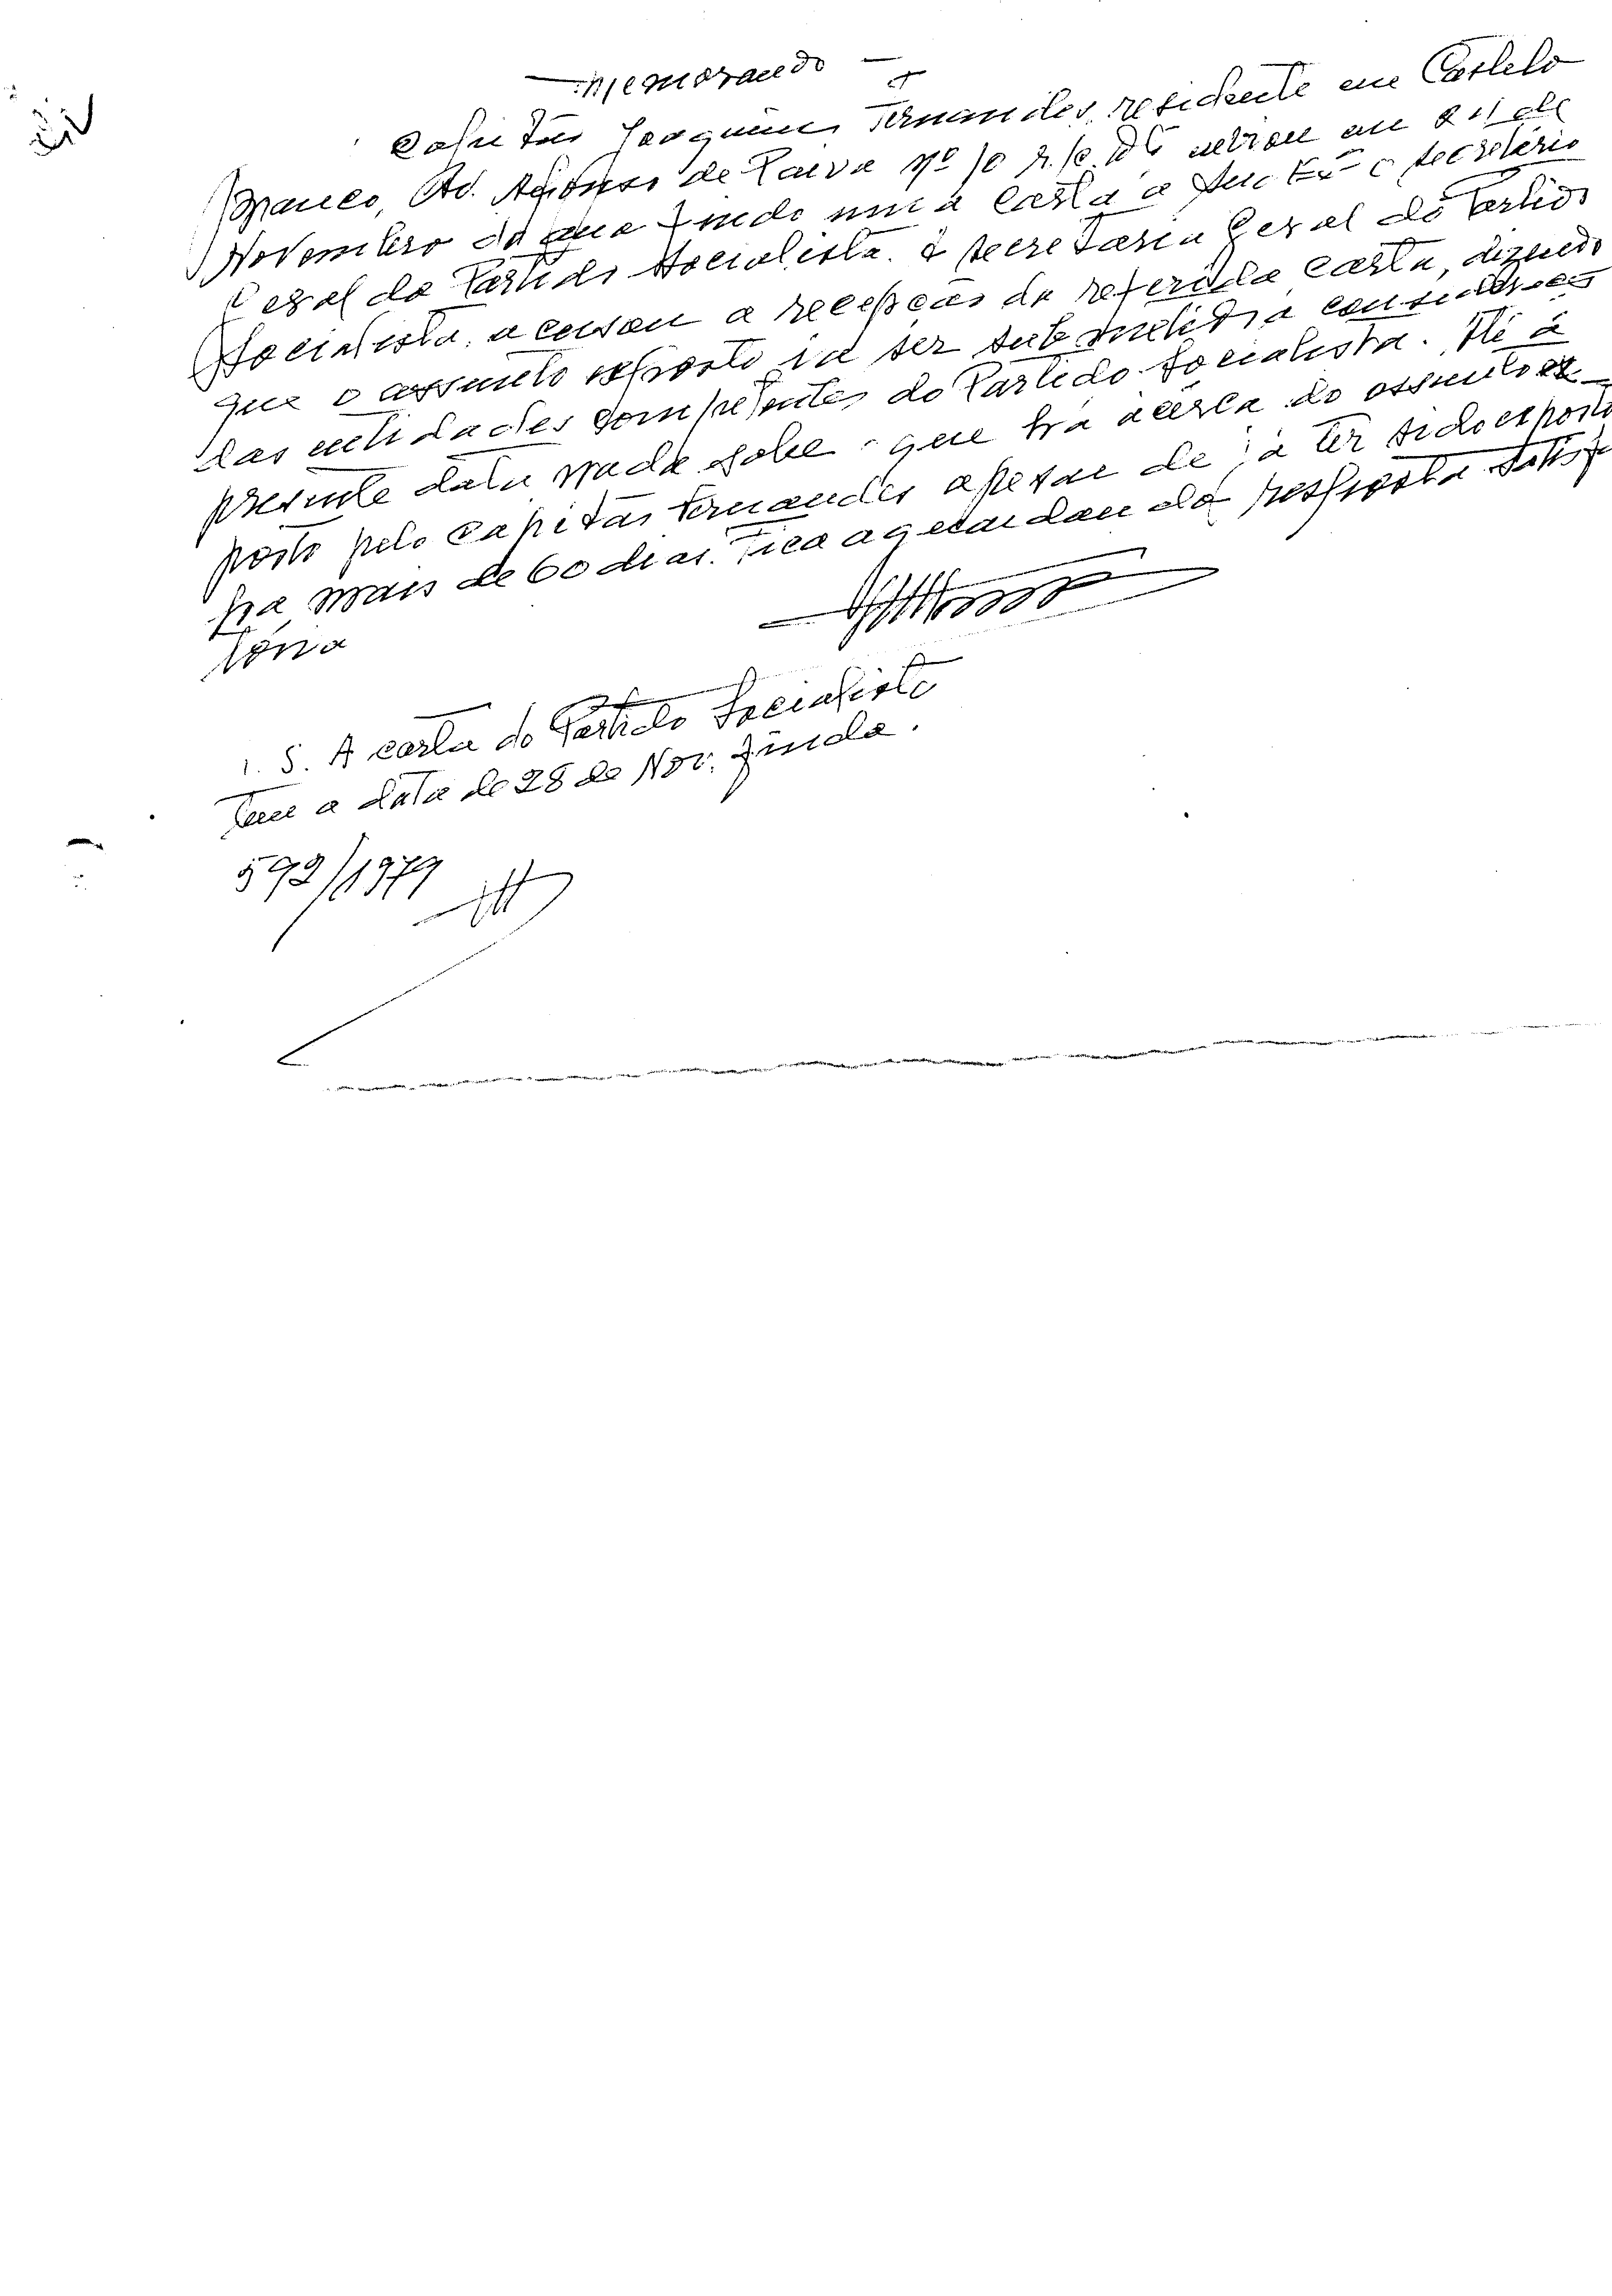 — Memorando —
Capitão Joaquim Fernandes, residente em Castelo
Branco, Av. Afonso de Paiva nº 10 r/c. enviou em 21 de
Novembro do ano findo uma carta a Sua Exª o Secretário
Geral do Partido Socialista. A Secretaria Geral do Partido
Socialista, acusou a recepção da referida carta, dizendo
que o assunto exposto ia ser submetido à consideração
das entidades competentes do Partido Socialista. Até à
presente data nada sabe o que há àcêrca do assunto ex-
posto pelo capitão Fernandes apesar de já ter sido exposto
há mais de 60 dias. Fica aguardando resposta satisfa
tória
P. S. A carta do Partido Socialista
tem a data de 28 de Nov. findo.
592/1979